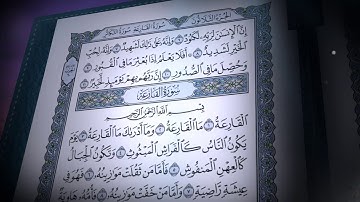 الجزء الثلاثون سورة القارعة سورة التكاثر
إِنَّ ٱلْإِنسَٰنَ لِرَبِّهِۦ لَكَنُودٌ ٦ وَإِنَّهُۥ عَلَىٰ ذَٰلِكَ لَشَهِيدٌ ٧ وَإِنَّهُۥ لِحُبِّ
ٱلْخَيْرِ لَشَدِيدٌ ٨ أَفَلَا يَعْلَمُ إِذَا بُعْثِرَ مَا فِى ٱلْقُبُورِ ٩
وَحُصِّلَ مَا فِى ٱلصُّدُورِ ١٠ إِنَّ رَبَّهُم بِهِمْ يَوْمَئِذٍ لَّخَبِيرٌۢ ١١
سورة القارعة
بِسْمِ ٱللَّهِ ٱلرَّحْمَٰنِ ٱلرَّحِيمِ
ٱلْقَارِعَةُ ١ مَا ٱلْقَارِعَةُ ٢ وَمَآ أَدْرَىٰكَ مَا ٱلْقَارِعَةُ ٣ يَوْمَ
يَكُونُ ٱلنَّاسُ كَٱلْفَرَاشِ ٱلْمَبْثُوثِ ٤ وَتَكُونُ ٱلْجِبَالُ
كَٱلْعِهْنِ ٱلْمَنفُوشِ ٥ فَأَمَّا مَن ثَقُلَتْ مَوَٰزِينُهُۥ ٦ فَهُوَ فِى
عِيشَةٍ رَّاضِيَةٍ ٧ وَأَمَّا مَنْ خَفَّتْ مَوَٰزِينُهُۥ ٨ فَأُمُّهُۥ هَاوِيَةٌ